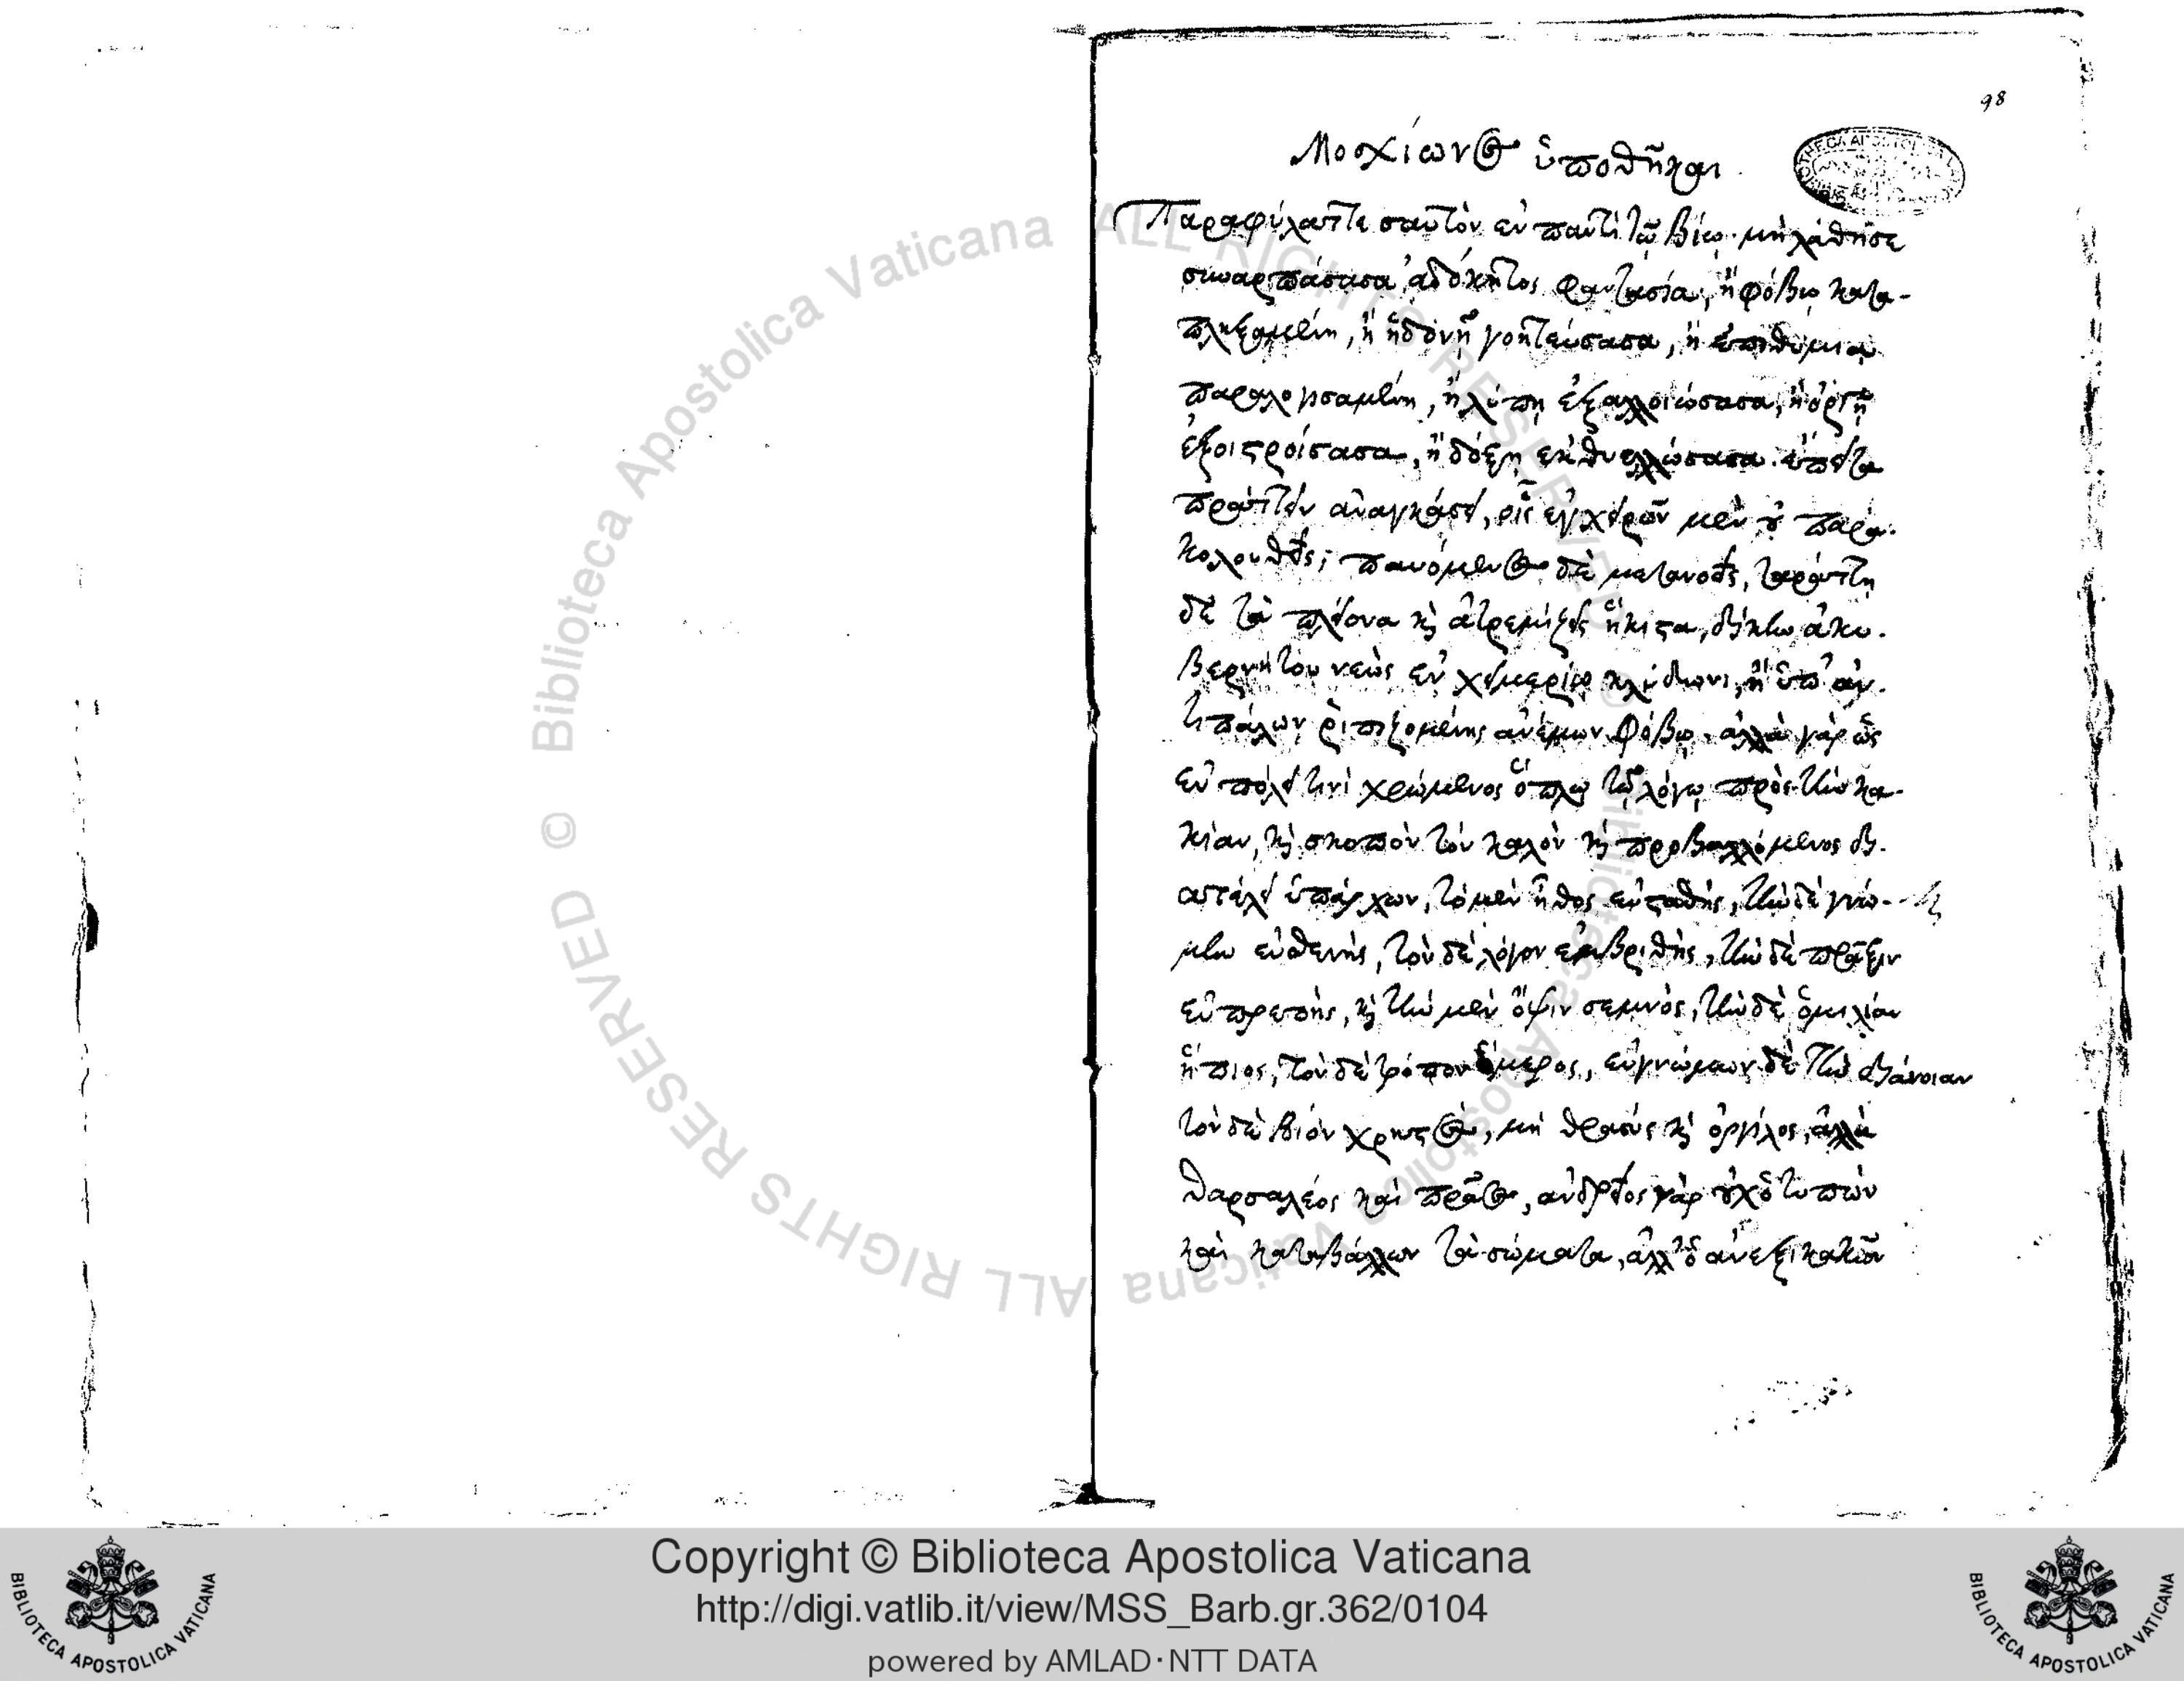 98
Μοσχίωνος ὑποθῆκαι.
Παραφύλαττε σαυτὸν ἐν παντὶ τῷ βίῳ· μὴ λάθῃ σε
συναρπάσασα ἀδόκητος φαντασία, ἢ φόβῳ κατα-
πληξαμένη, ἢ ἡδονῇ γοητεύσασα, ἢ ἐπιθυμίᾳ
παραλογισαμένη, ἢ λύπῃ ἐξαλλοιώσασα, ἢ ὀργῇ
ἐξοιστροίσασα, ἢ δόξῃ
πράττειν ἀναγκάσει, οἷς ἐγχειρῶν μὲν οὐ παρα-
κολουθεῖς, παυόμενος δὲ μετανοεῖς, ταράττῃ
δὲ τὰ πλείονα καὶ ἀτρεμίζεις ἥκιστα, δίκην ἀκυ-
βερνήτου νεὼς ἐν χειμερίῳ κλύδωνι, ἢ ὑπ' ἀν-
τιπάλων ῥιπιζομένης ἀνέμων φόβῳ. ἀλλὰ γὰρ ὡς
ἐν πολέ τινὶ χρώμενος ὅπλῳ τῷ λόγῳ πρὸς τὴν κα-
κίαν, καὶ σκοπὸν τὸν καλὸν καὶ προβαλλόμενος δι-
ατέλει ὑπάρχων, τὸ μὲν ἦθος εὐσταθής, τὴν δὲ γνώ-
μην εὐθενής, τὸν δὲ λόγον ἐμβριθής, τὴν δὲ πρᾶξιν
εὐπρεπής, καὶ τὴν μὲν ὄψιν σεμνὸς, τὴν δὲ ὁμιλίαν
ἤπιος, τὸν δὲ τρόπον ἥμερος, εὐγνώμων δὲ τὴν διάνοιαν
τὸν δὲ βιὸν χρηστὸς, μὴ θρασύς καὶ ὀργίλος, ἀλλὰ
θαρσαλέος καὶ πρᾶος, ἀνδρεῖος γὰρ οὐχ ὁ τυπῶν
καὶ καταβάλλων τὰ σώματα, ἀλλ' ὁ ἀνεξικακῶν
Copyright © Biblioteca Apostolica Vaticana
http://digi.vatlib.it/view/MSS_Barb.gr.362/0104
powered by AMLAD·NTT DATA
BIBLIOTECA APOSTOLICA VATICANA
BIBLIOTECA APOSTOLICA VATICANA
© Biblioteca Apostolica Vaticana ALL RIGHTS RESERVED © Biblioteca Apostolica Vaticana ALL RIGHTS RESERVED